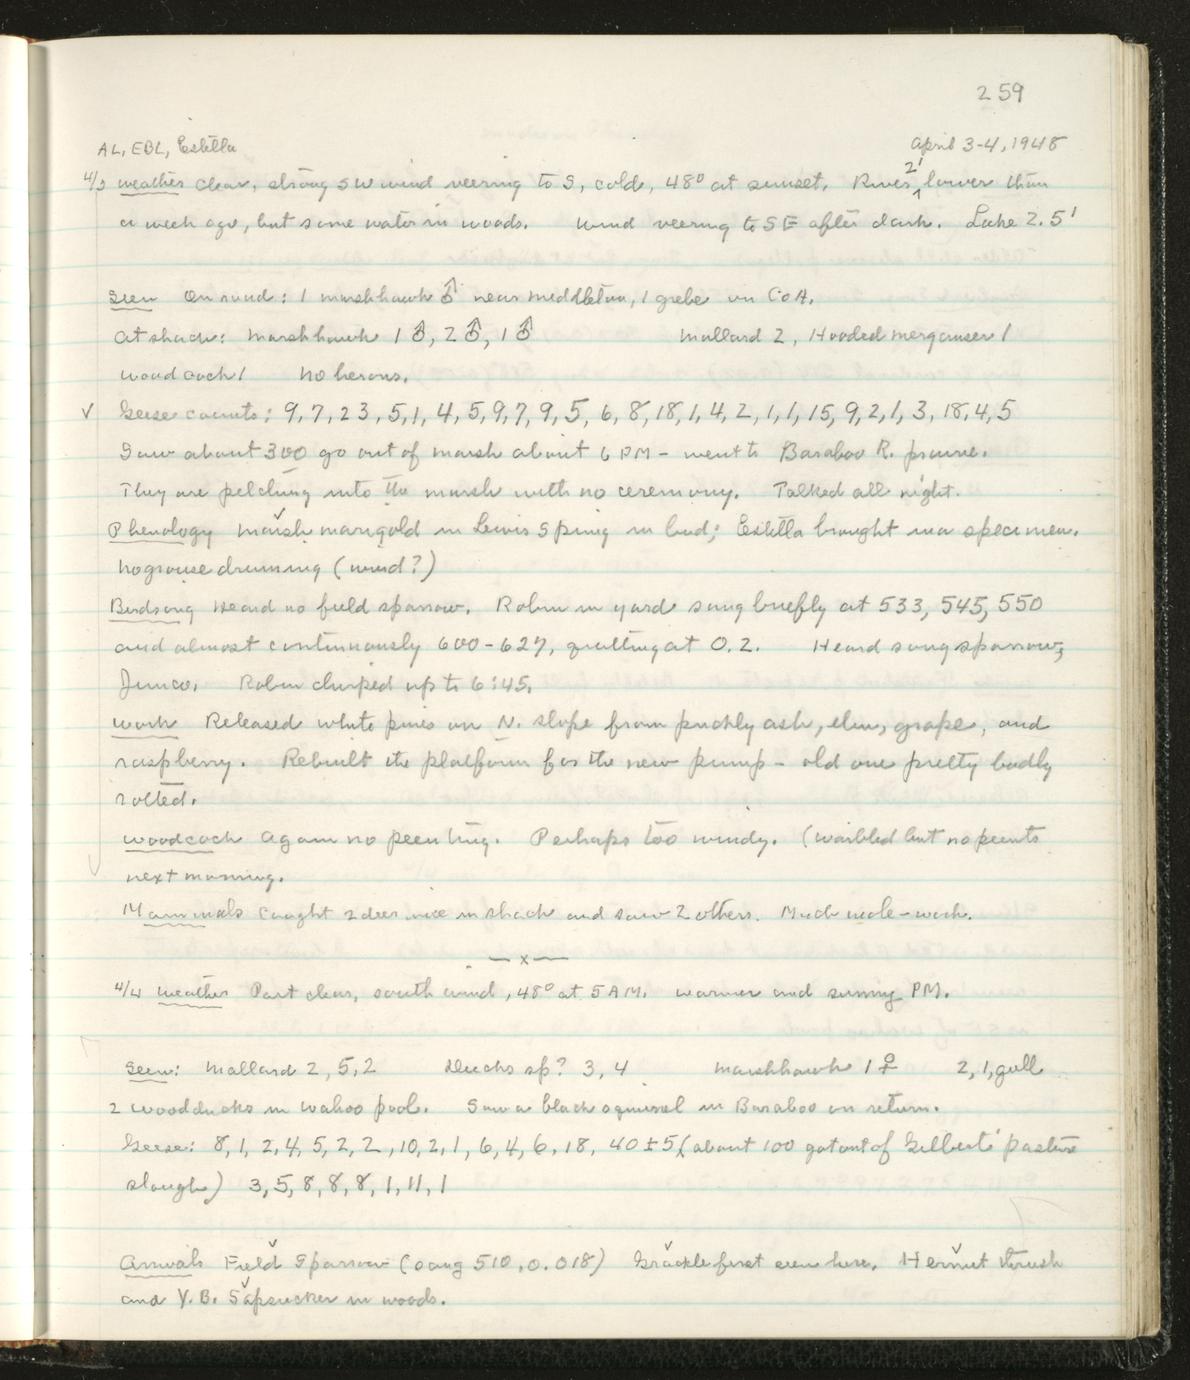 259
AL, EBL, Estella April 3-4, 1948
4/3 weather clear, strong SW wind veering to S, cold, 48° at sunset. River 2' lower than
a week ago, but some water in woods. Wind veering to SE after dark. Lake 2.5'
Seen On road: 1 marshhawk ♂ near Middleton, 1 grebe on Co A.
At shack: Marshhawk 1 ♂, 2 ♂, 1 ♂ Mallard 2, Hooded merganser 1
woodcock 1 No herons.
✓ Geese counts: 9, 7, 23, 5, 1, 4, 5, 9, 7, 9, 5, 6, 8, 18, 1, 4, 2, 1, 1, 15, 9, 2, 1, 3, 18, 4, 5
Saw about 300 go out of marsh about 6 PM - went to Baraboo R. prairie.
They are pelching into the marsh with no ceremony. Talked all night.
Phenology Marsh marigold in Lewis Spring in bud; Estella brought in a specimen.
No grouse drumming (wind?)
Birdsong Heard no field sparrow. Robin in yard sang briefly at 533, 545, 550
and almost continuously 600-627, quitting at 0.2. Heard song sparrow,
Junco. Robin chirped up to 6:45.
Work Released white pines on N. slope from prickly ash, elm, grape, and
raspberry. Rebuilt the platform for the new pump - old one pretty badly
rotted.
Woodcock Again no peenting. Perhaps too windy. (Warbled but no peents
next morning.
Mammals Caught 2 deer mice in shack and saw 2 others. Much mole-work.
—x—
4/4 Weather Part clear, south wind, 48° at 5 AM. warmer and sunny PM.
Seen: Mallard 2, 5, 2 Ducks sp? 3, 4 Marshhawk 1 ♀ 2, 1, gull
2 wood ducks in Wahoo pool. Saw a black squirrel in Baraboo on return.
Geese: 8, 1, 2, 4, 5, 2, 2, 10, 2, 1, 6, 4, 6, 18, 40 ± 5, (about 100 got out of Gilberts' pasture
slough) 3, 5, 8, 8, 8, 1, 11, 1
Arrivals Field Sparrow (sang 510, 0.018) Grackle first seen here. Hermit thrush
and Y.B. Sapsucker in woods.